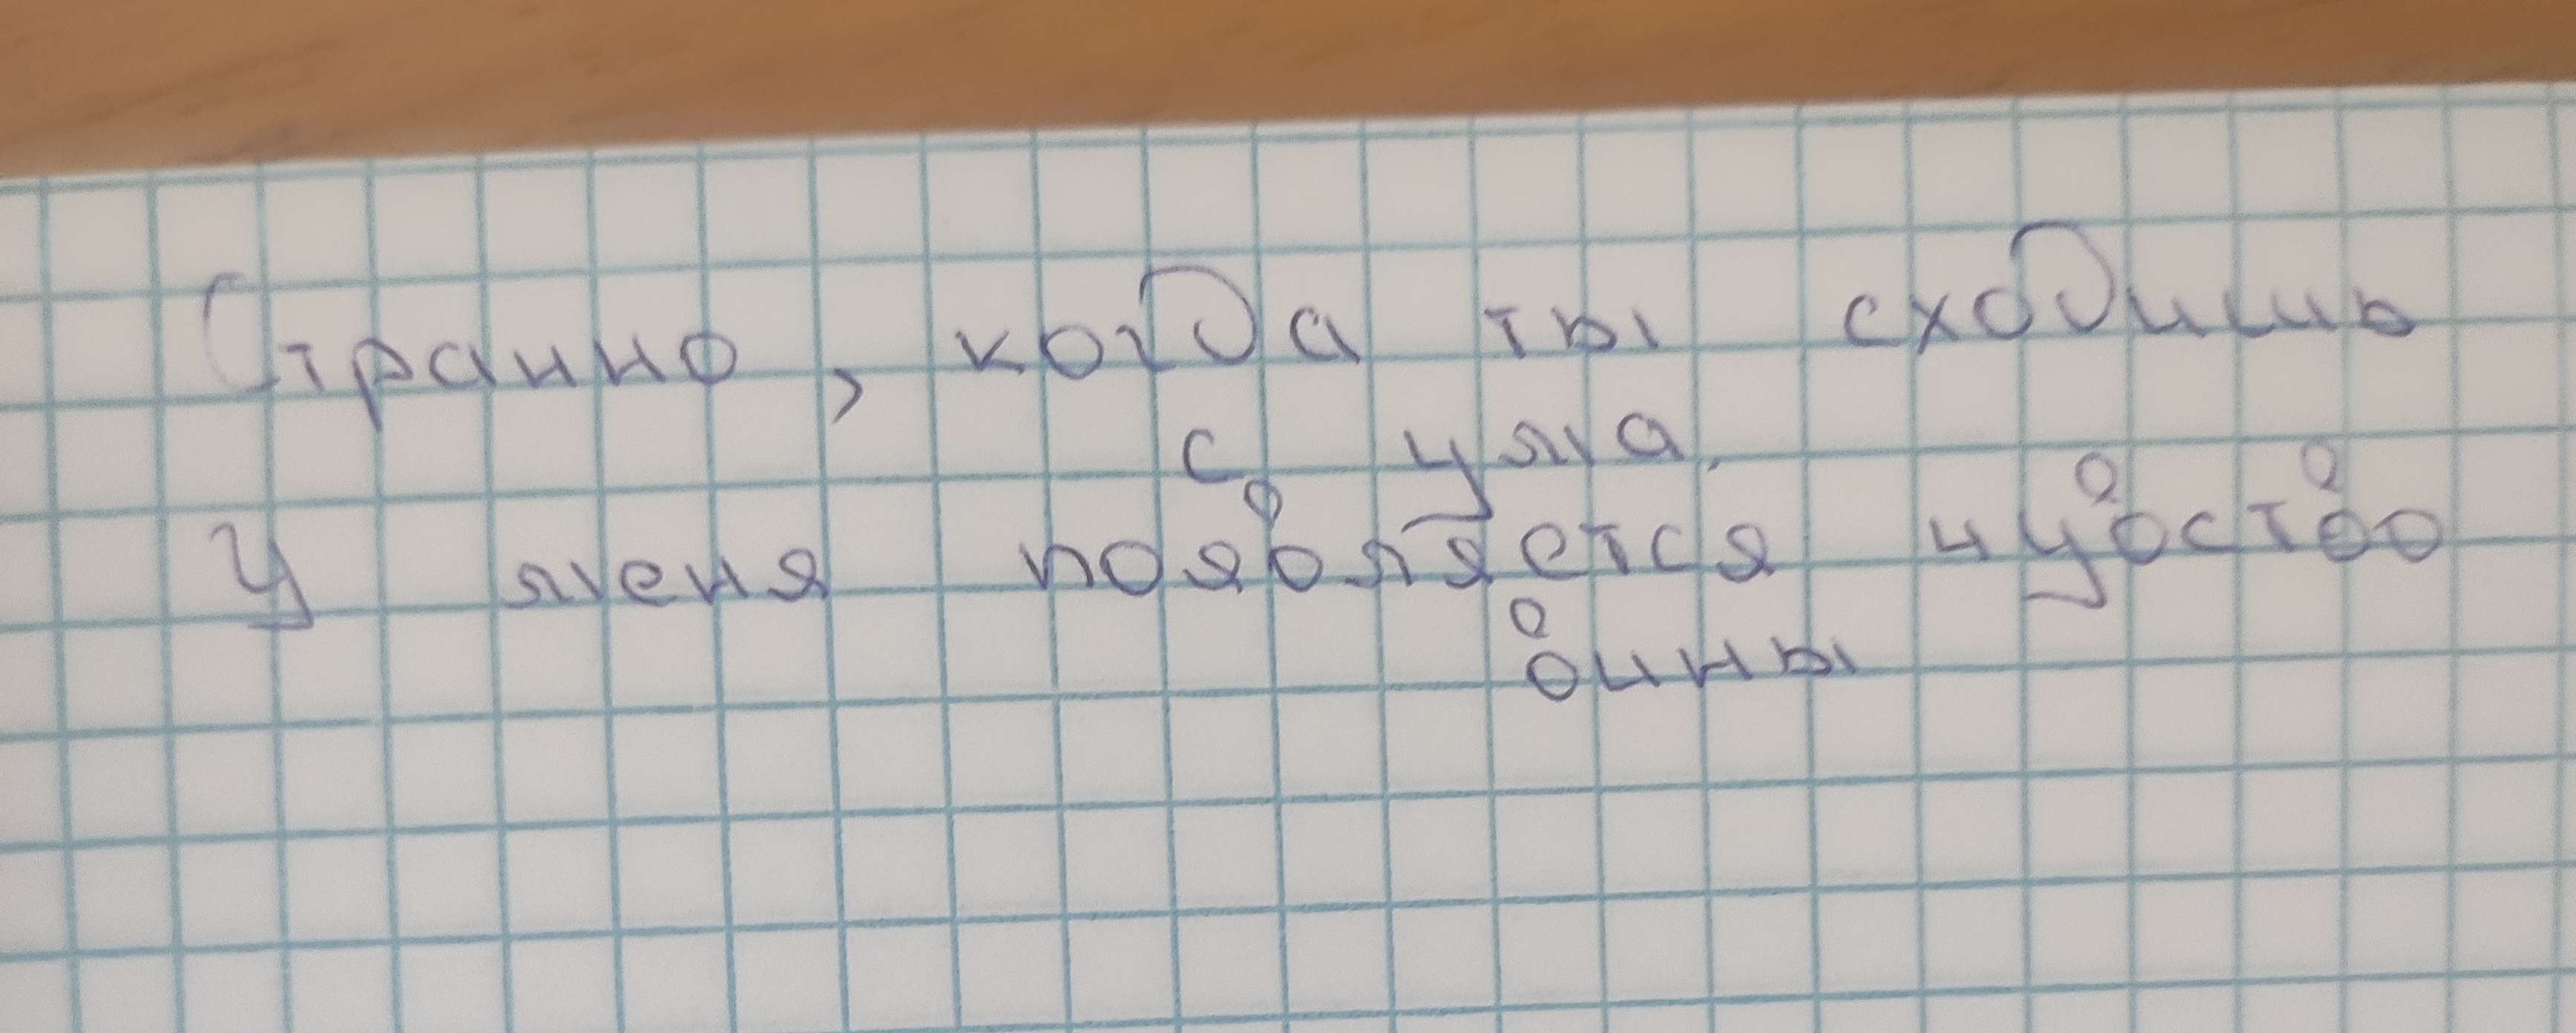 Странно, когда ты сходишь
с ума.
У меня появляется чувство
вины